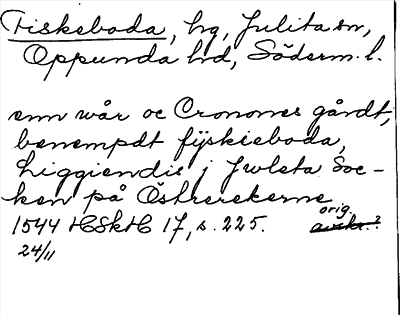 Fiskeboda, hg, Julita sn,
Oppunda hd, Söderm. l.
enn wår oc Cronones gårdt,
benempdt fÿskieboda,
liggiendis j Jwleta Soc-
ken på Östrerekerne
orig.
1544 HSkH 17, s. 225. avskr.?
24/11